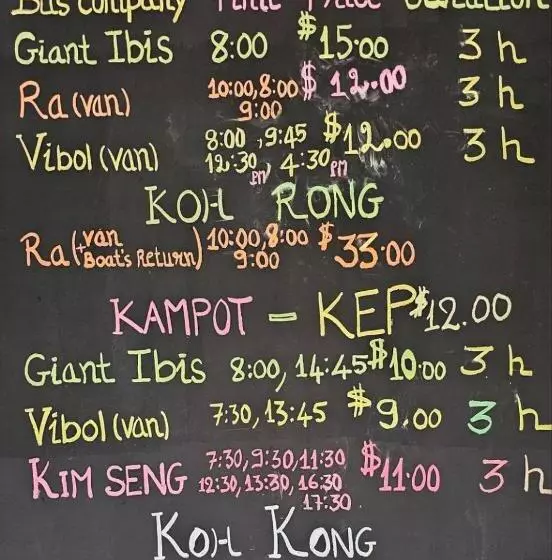 Bus Company Time Price Duration
Giant Ibis 8:00 $15.00 3 h
Ra (van) 10:00, 8:00 9:00 $12.00 3 h
Vibol (van) 8:00, 9:45 12:30 PM, 4:30 PM $12.00 3 h
KOH RONG
Ra (van + Boat's Return) 10:00, 8:00 9:00 $33.00
KAMPOT - KEP $12.00
Giant Ibis 8:00, 14:45 $10.00 3 h
Vibol (van) 7:30, 13:45 $9.00 3 h
KIM SENG 7:30, 9:30, 11:30 12:30, 13:30, 16:30 17:30 $11.00 3 h
KOH KONG